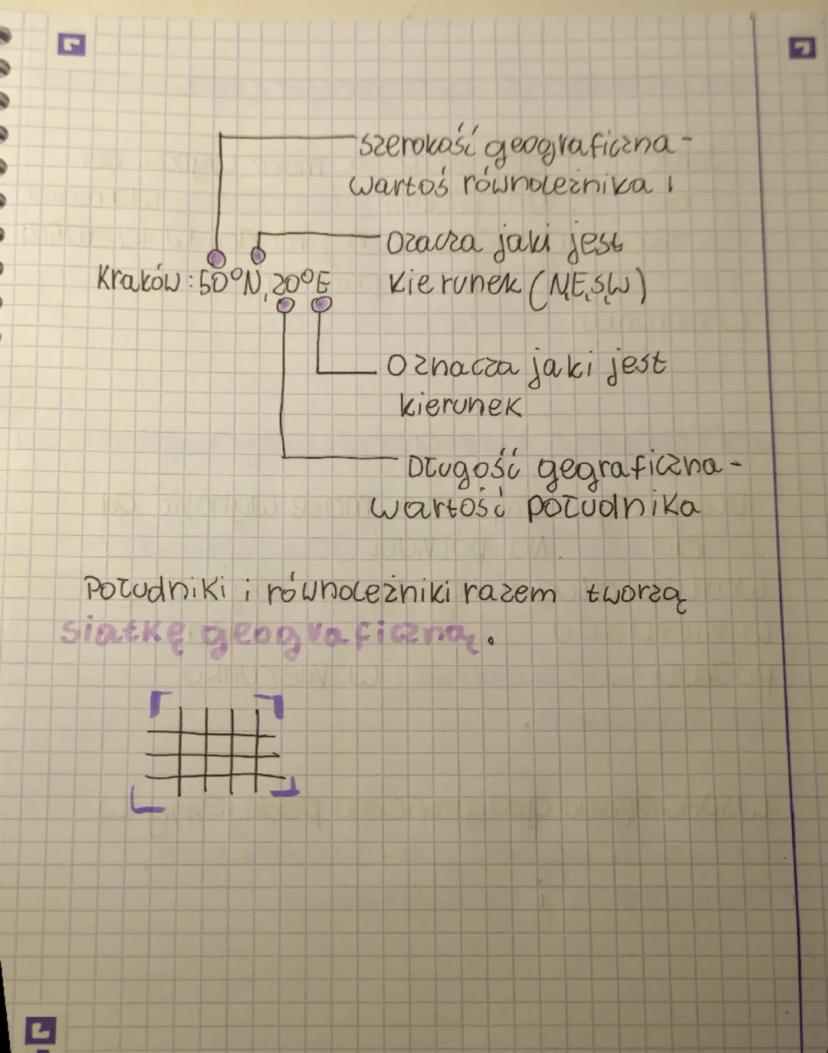 szerokość geograficzna -
wartoś równoleżnika i
Ozacza jaki jest
kierunek (N,E,S,W)
Kraków: 50°N, 20°E
Oznacza jaki jest
kierunek
Długość gegraficzna -
wartość południka
Południki i równoleżniki razem tworzą
siatkę geograficzną.